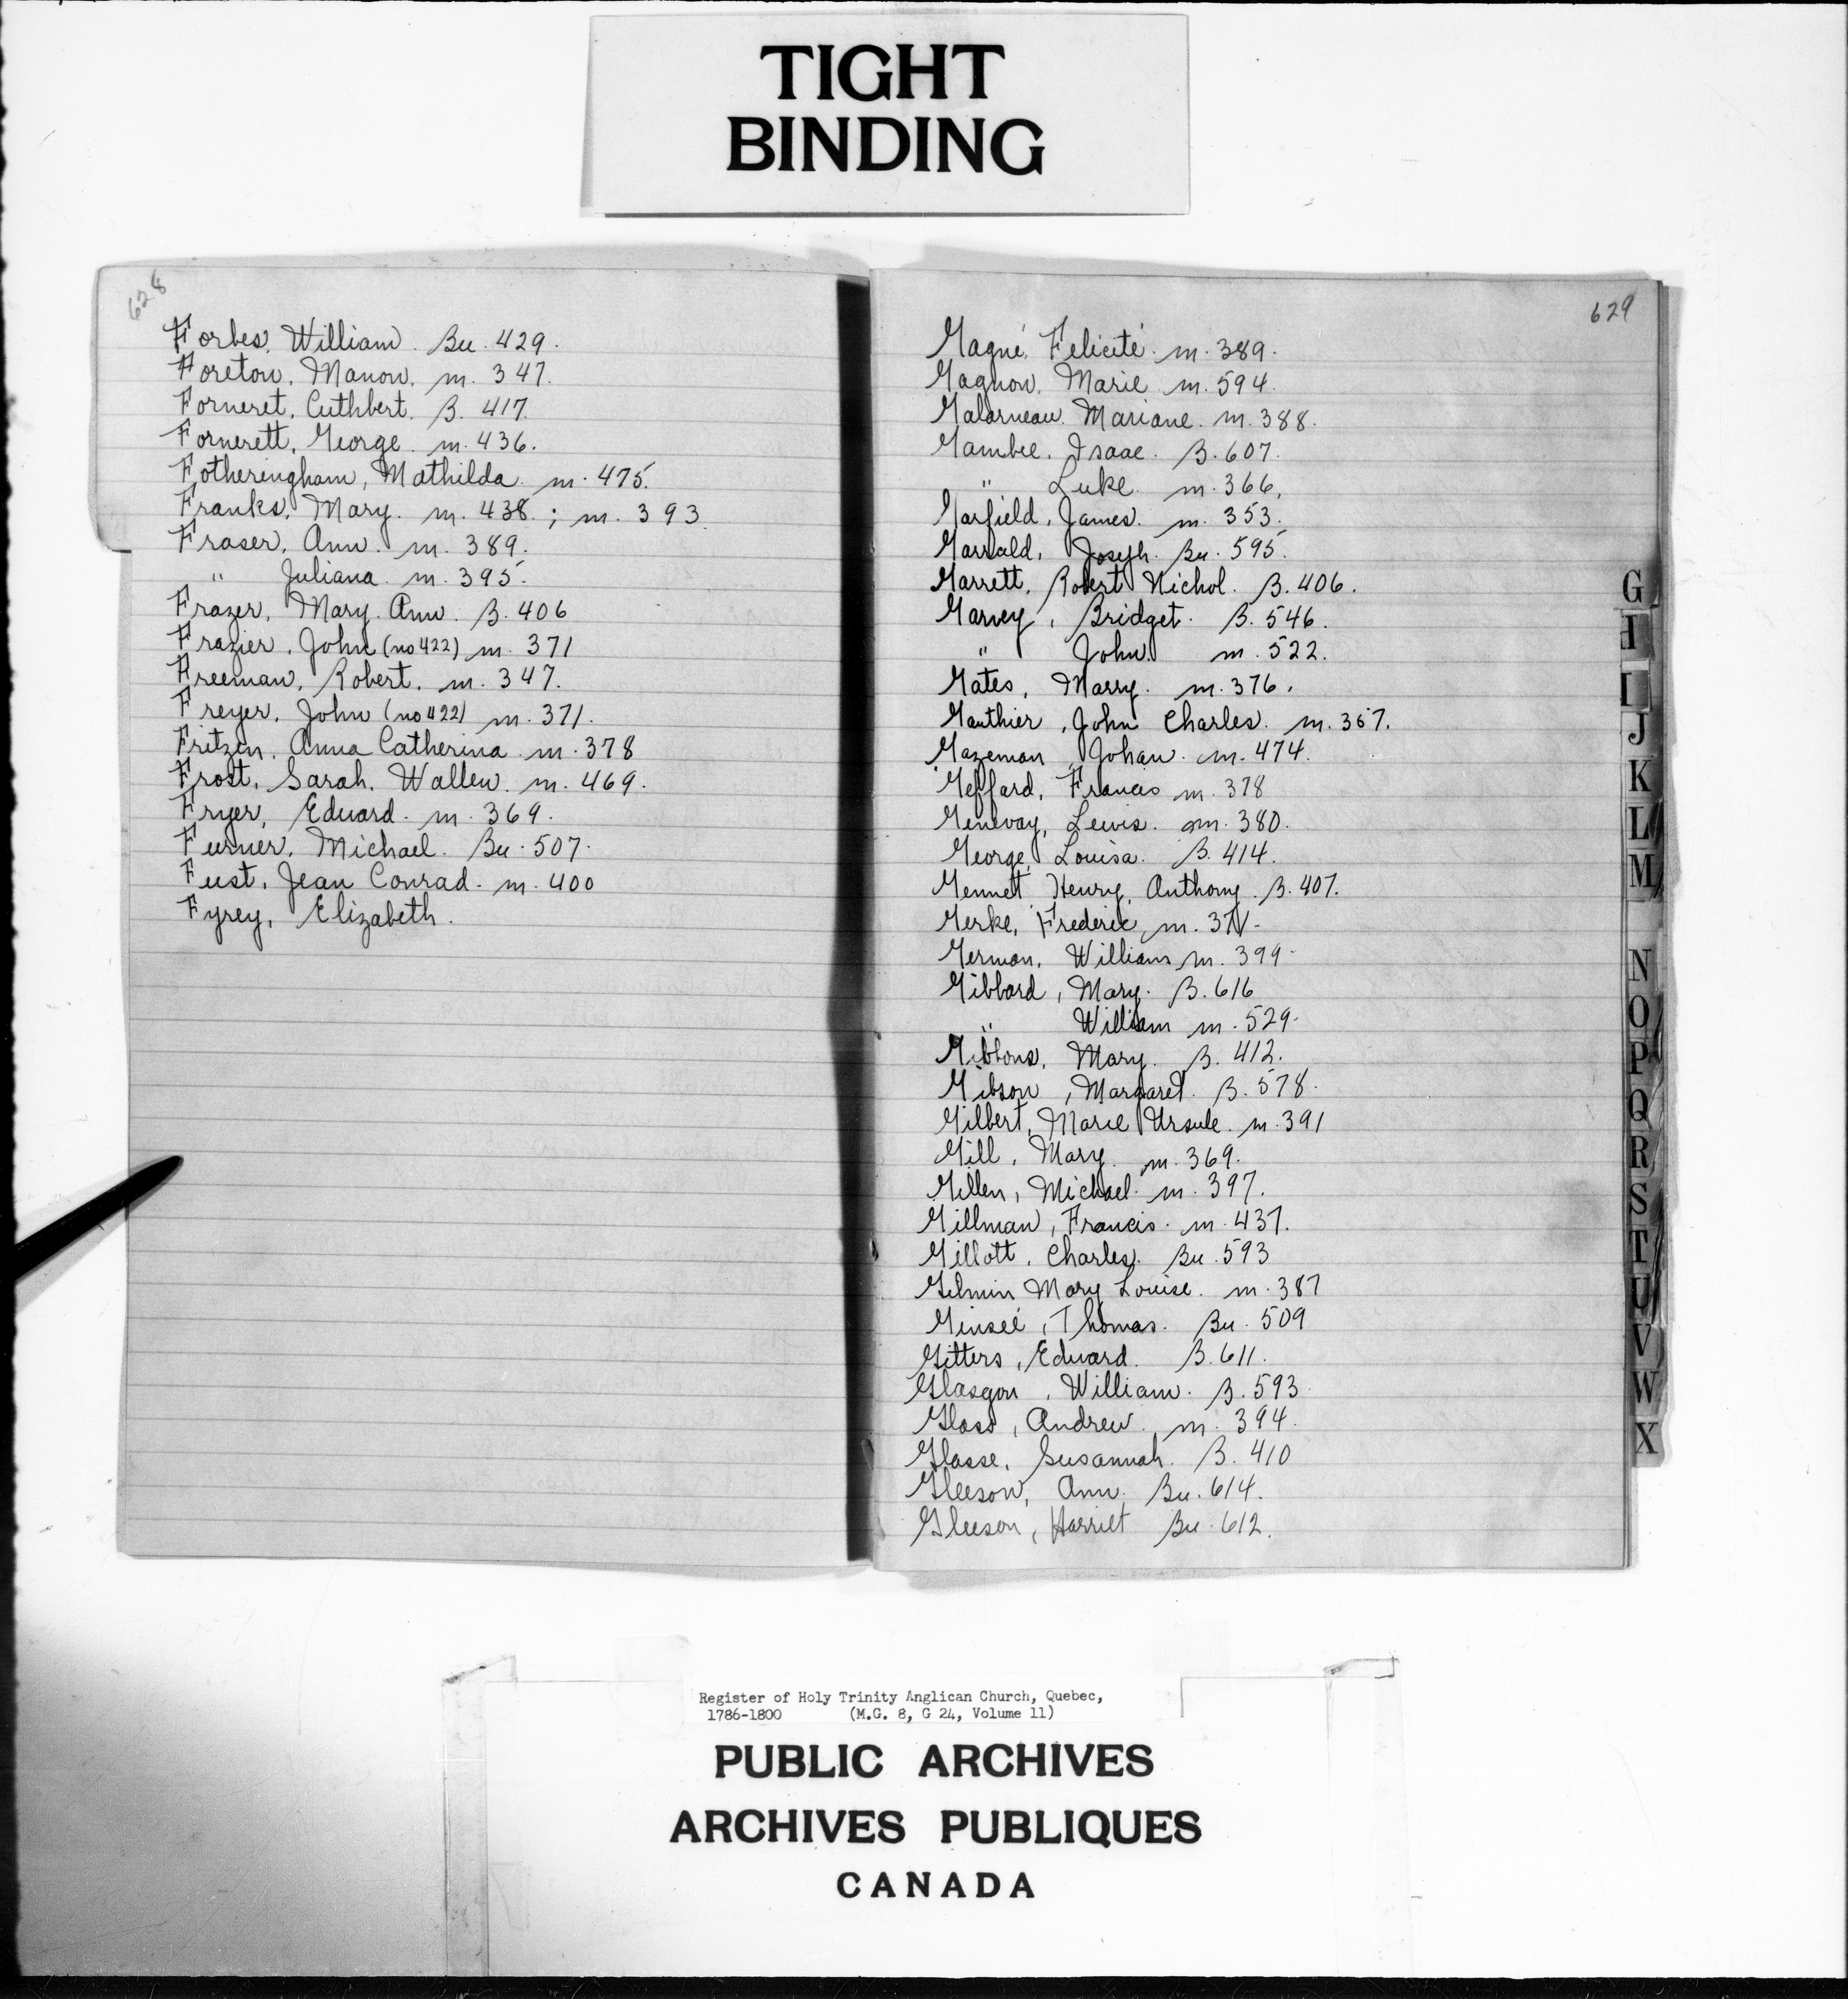 TIGHT
BINDING
628
Forbes, William. Bu. 429.
Foreton, Manon. m. 347.
Forneret, Cuthbert. B. 417.
Fornerett, George. m. 436.
Fotheringham, Mathilda. m. 475.
Franks, Mary. m. 438.; m. 393.
Fraser, Ann. m. 389.
" Juliana. m. 395.
Frazer, Mary Ann. B. 406
Frazier, John (no 422) m. 371
Freeman, Robert. m. 347.
Freyer, John (no 422) m. 371.
Fritzen, Anna Catherina m. 378
Frost, Sarah, Wallen. m. 469.
Fryer, Edward. m. 369.
Furner, Michael. Bu. 507.
Fust, Jean Conrad. m. 400
Fyrey, Elizabeth.
629
Gagné, Felicité. m. 389.
Gagnon, Marie m. 594.
Galarneau, Mariane. m. 388.
Gambee, Isaac. B. 607.
" Luke. m. 366.
Garfield, James. m. 353.
Garrald, Joseph. Bu. 595.
Garrett, Robert Nichol. B. 406.
Garvey, Bridget. B. 546.
" John m. 522.
Gates, Marry. m. 376.
Gauthier, John Charles. m. 367.
Gazeman, Johan. m. 474.
Geffard, Francis m. 378
Genevay, Lewis. m. 380.
George, Louisa. B. 414.
Gennet, Henry, Anthony. B. 407.
Gerke, Frederic, m.
German, William m. 399.
Gibbard, Mary. B. 616
" William m. 529.
Gibbons, Mary. B. 412.
Gibson, Margaret. B. 578.
Gilbert, Marie Ursule. m. 391
Gill, Mary. m. 369.
Gillen, Michael. m. 397.
Gillman, Francis. m. 437.
Gillott, Charles. Bu. 593
Gilmin Mary Louise. m. 387
Ginseé, Thomas. Bu. 509
Gitters, Edward. B. 611.
Glasgon, William. B. 593
Glass, Andrew. m. 394.
Glasse, Susannah. B. 410
Gleeson, Ann. Bu. 614.
Gleeson, Harriet Bu. 612.
G
I
J
K
L
M
N
O
P
Q
R
S
T
U
V
W
X
Register of Holy Trinity Anglican Church, Quebec,
1786-1800 (M.G. 8, G 24, Volume 11)
PUBLIC ARCHIVES
ARCHIVES PUBLIQUES
CANADA